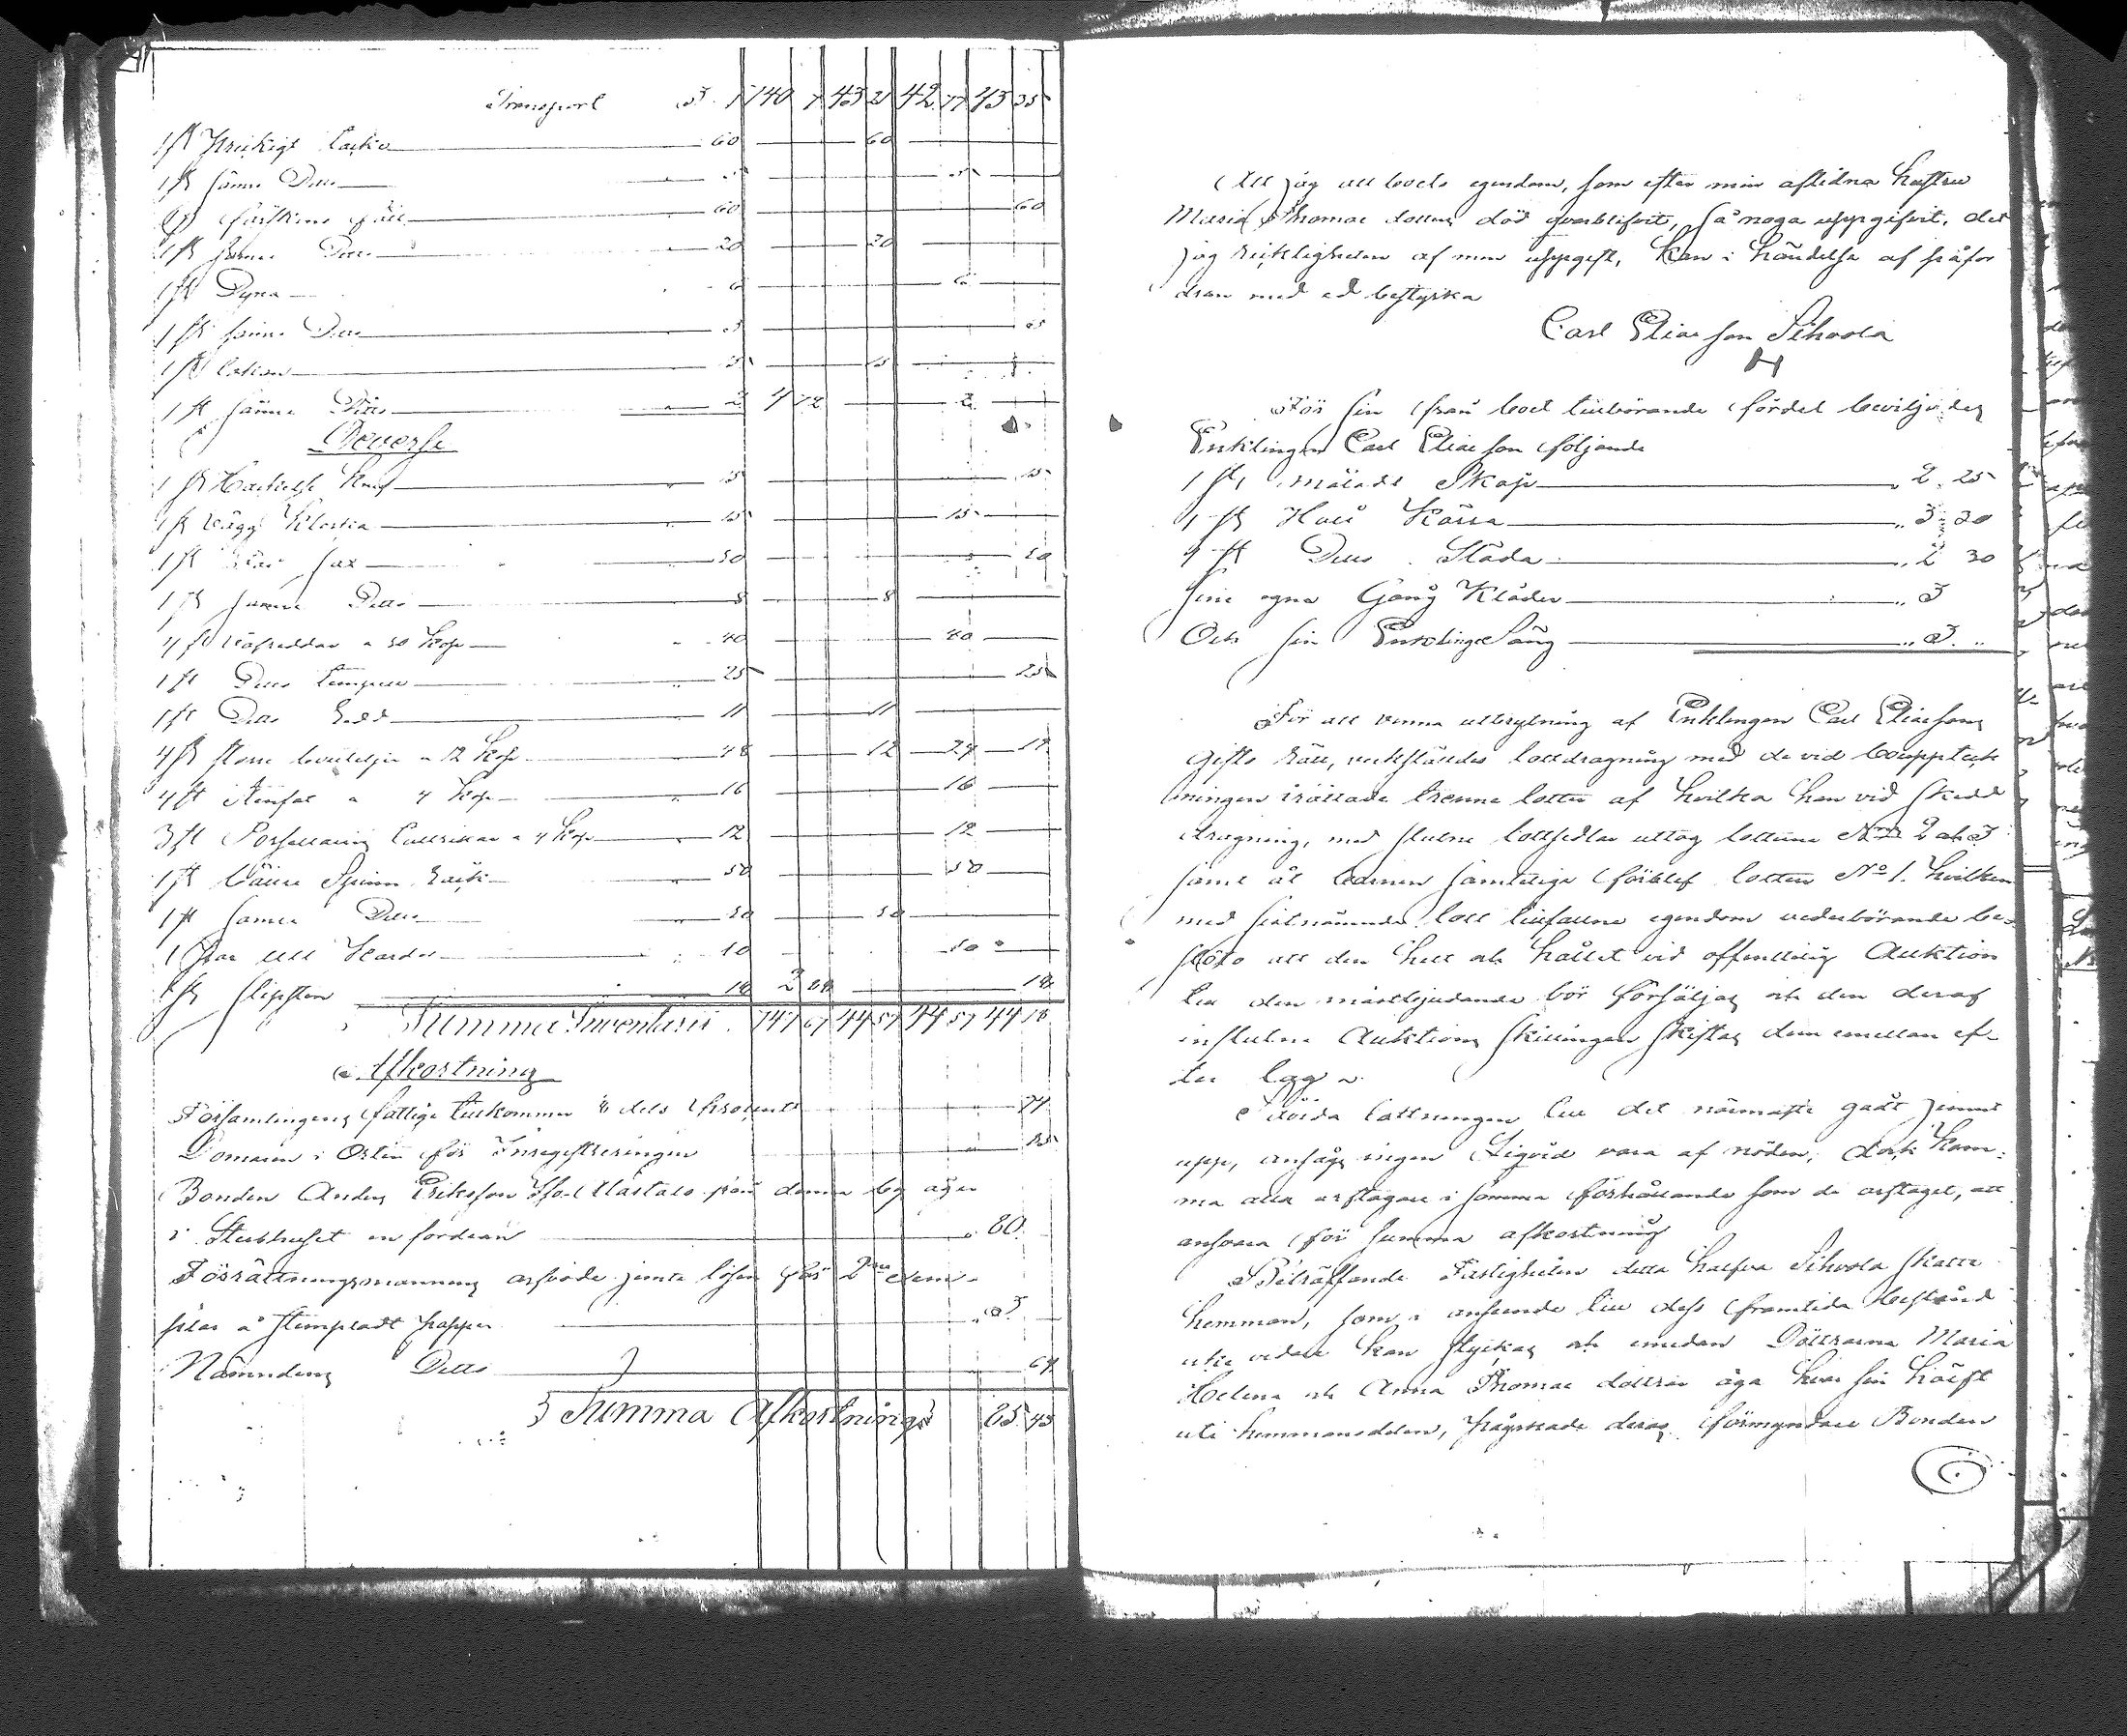 Transport 740 7 43 42 17 43 35
1 st Prickigt Täcke 60 60
1 st sämre Ditto
fårskins fäll 60 60
1 st sämre Ditto 20 20
1 st Dyna 6 6
1 st sämre Ditto
1 st Lakan
1 st sämre Ditto 2 4 72 2
Diverse
1 st Hackelse Knif 15 15
1 st Vägg Klocka 15 15
1 st sax 50 50
1 st sämre Ditto 8 8
4 st Väfskeddar a 10 Kop 40 40
1 st Ditto 25 25
1 st Ditto 11 11
4 st större bouteljer a 12 Kop 48 12 24 12
4 st Stenfat a 4 Kop 16 16
3 st Porslains Tallrickar a 4 Kop 12 12
1 st bättre Spinn Råck 50 50
1 st sämre Ditto 50 50
1 Par Ull Kardor 10 10
1 st slipsten 18 2 18
Summa Inventarii 747 67 44 57 44 57 44 18
Afkostning
Församlingens fattige tillkommer 1/8 dels procent 74
Domaren i Orten för Inregistreringen 85
Bonden Anders Eriksson från denna by äger
i Sterbhuset en fordran 80
Förrättningsmannens arfvode jemte lösen för 2ne exem-
plar å stempladt papper 3
Nämndens Ditto 64
Summa Afkostning 85 43
Att jag all boets egendom, som efter min aflidna hustru
Maria Thomae dotters död qvarblifvit, så noga uppgifvit, det
jag riktigheten af min uppgift, kan i händelse af påfor
dran med ed bestyrka
Carl Eliae son Sihvola
För sin från boet tillhörande fördel beviljades
Enklingen Carl Eliae son följande
1 st målade Skåp 2 25
1 st Kärra 3 20
1 st Ditto Släda 2 30
Sine egna Gång Kläder 3
Och sin Enklinge Säng 3
För att vinna utbrytning af Enklingen Carl Eliaesons
Gifto rätt, verkställdes lottdragning med de vid bouppteck
ningen inrättade trenne lotter af hvilka han vid skedd
dragning, med slutne lottsedlar uttog lotterne No 2 och 3
samt åt barnen samtelige förblef lotten No 1. hvilken
med sistnämnde lott tillfallne egendom vederbörande be-
slöto att den helt och hållet vid offentelig Auktion
till den mästbjudande bör försäljas och den deraf
influtne Auktions skillingen skiftas dem emellan ef-
ter lag
lottningen till det närmaste gådt jemnt
upp, ansågs ingen Liqvid vara af nöden, dock kom-
ma alla arftagare i samma förhållande som de arftaget, att
ansvara för summa afkostning
Beträffande Fastigheten detta halfva Sihvola skatte
hemman, som i anseende till dess framtida bestånd
icke vidare kan styckas och emedan Döttrarna Maria
Helena och Anna Thomae döttrar äga hvar sin hälft
uti hemmansdelen, påyrkade deras förmyndare Bonden